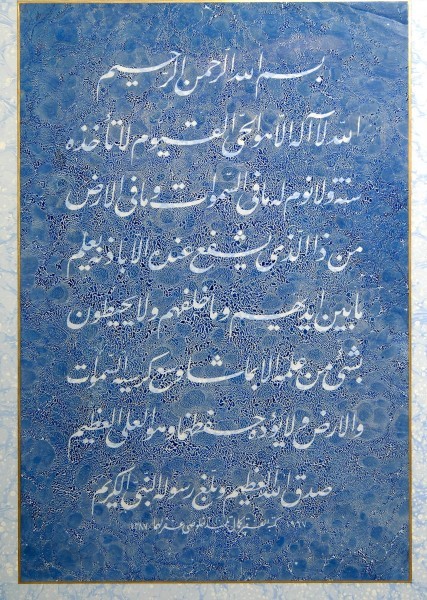 بسم الله الرحمن الرحيم
الله لا اله الا هو الحى القيوم لا تأخذه
سنة ولا نوم له ما فى السموات وما فى الارض
من ذا الذى يشفع عنده الا باذنه يعلم
ما بين ايديهم وما خلفهم ولا يحيطون
بشئ من علمه الا بما شاء وسع كرسيه السموات
والارض ولا يؤده حفظهما وهو العلى العظيم
صدق الله العظيم وبلغ رسوله النبى الكريم